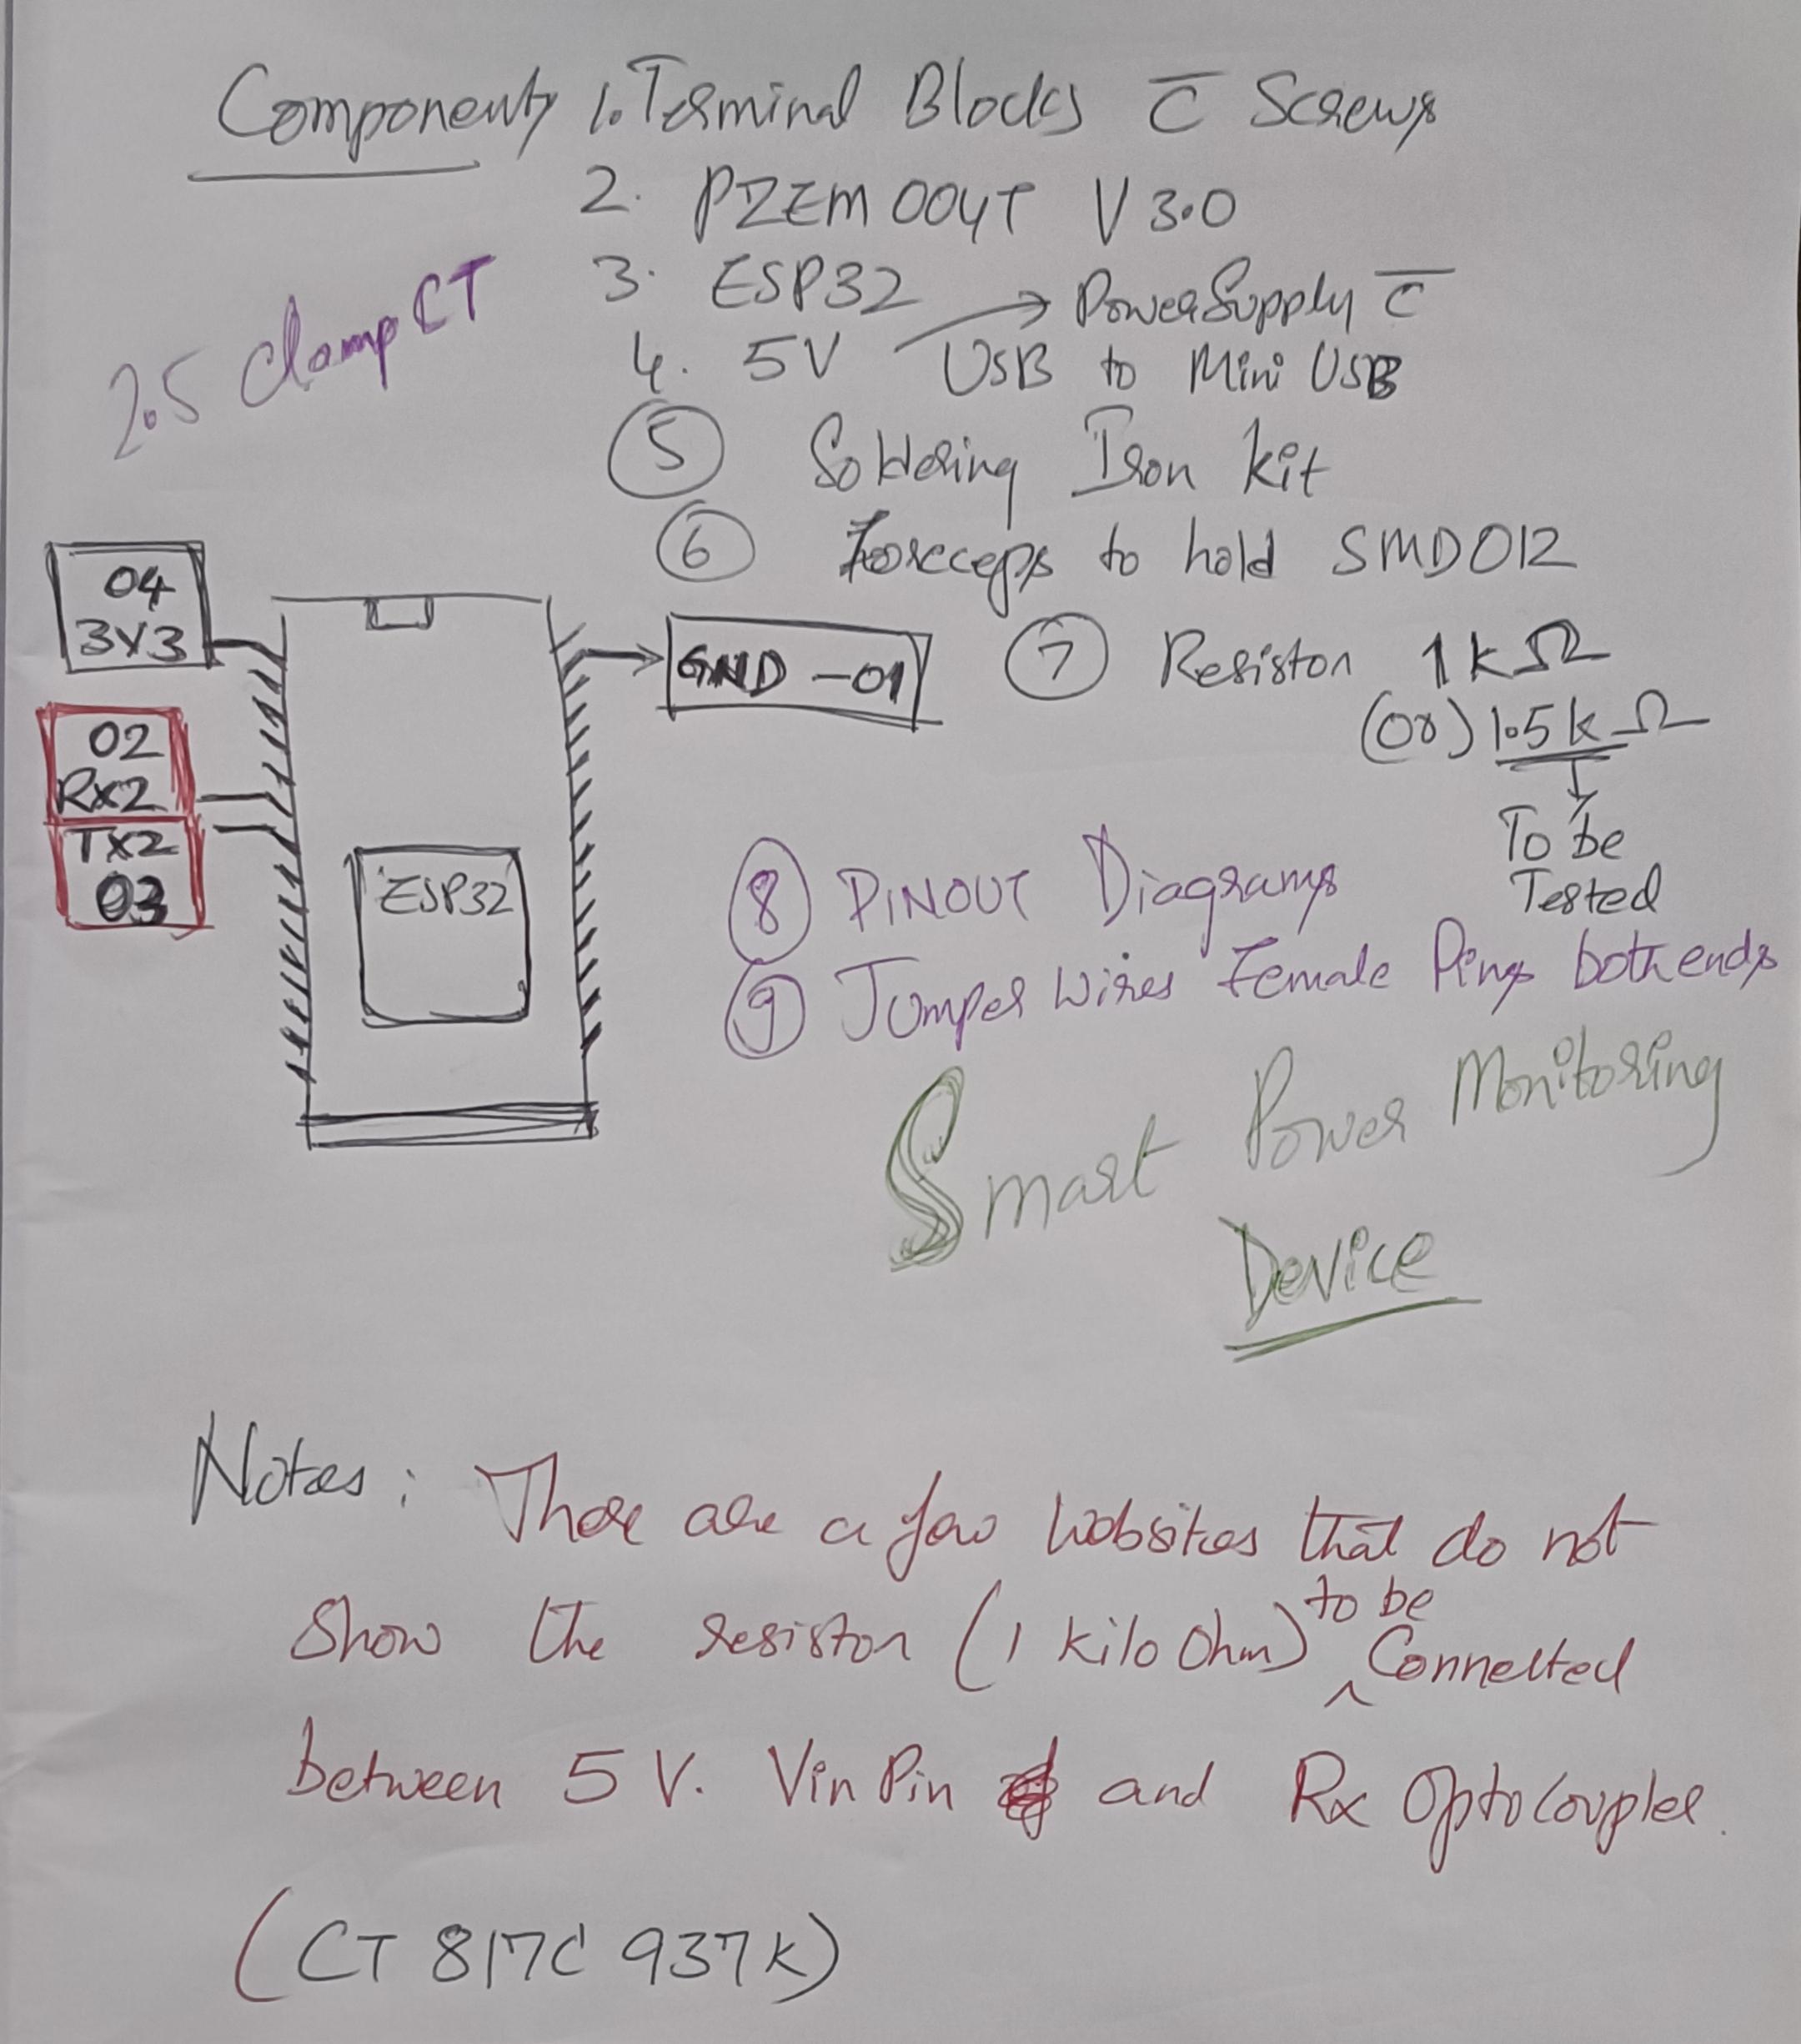 Components 1. Terminal Blocks c̅ Screws
2. PZEM 004T V 3.0
3. ESP32
4. 5V → Power Supply c̅
USB to Mini USB
2.5 Clamp CT
5 Soldering Iron kit
6 Forcceps to hold SMD012
7 Resistor 1kΩ
(or) 1.5kΩ
To be
Tested
04
3V3
GND -01
02
Rx2
TX2
03
ESP32
8 PINOUT Diagrams
9 Jumper Wires Female Pins both ends
Smart Power Monitoring
Device
Notes: There are a few websites that do not
Show the resistor (1 kilo Ohm) to be Connected
between 5 V. Vin Pin and Rx Optocoupler.
(CT 817C 937K)